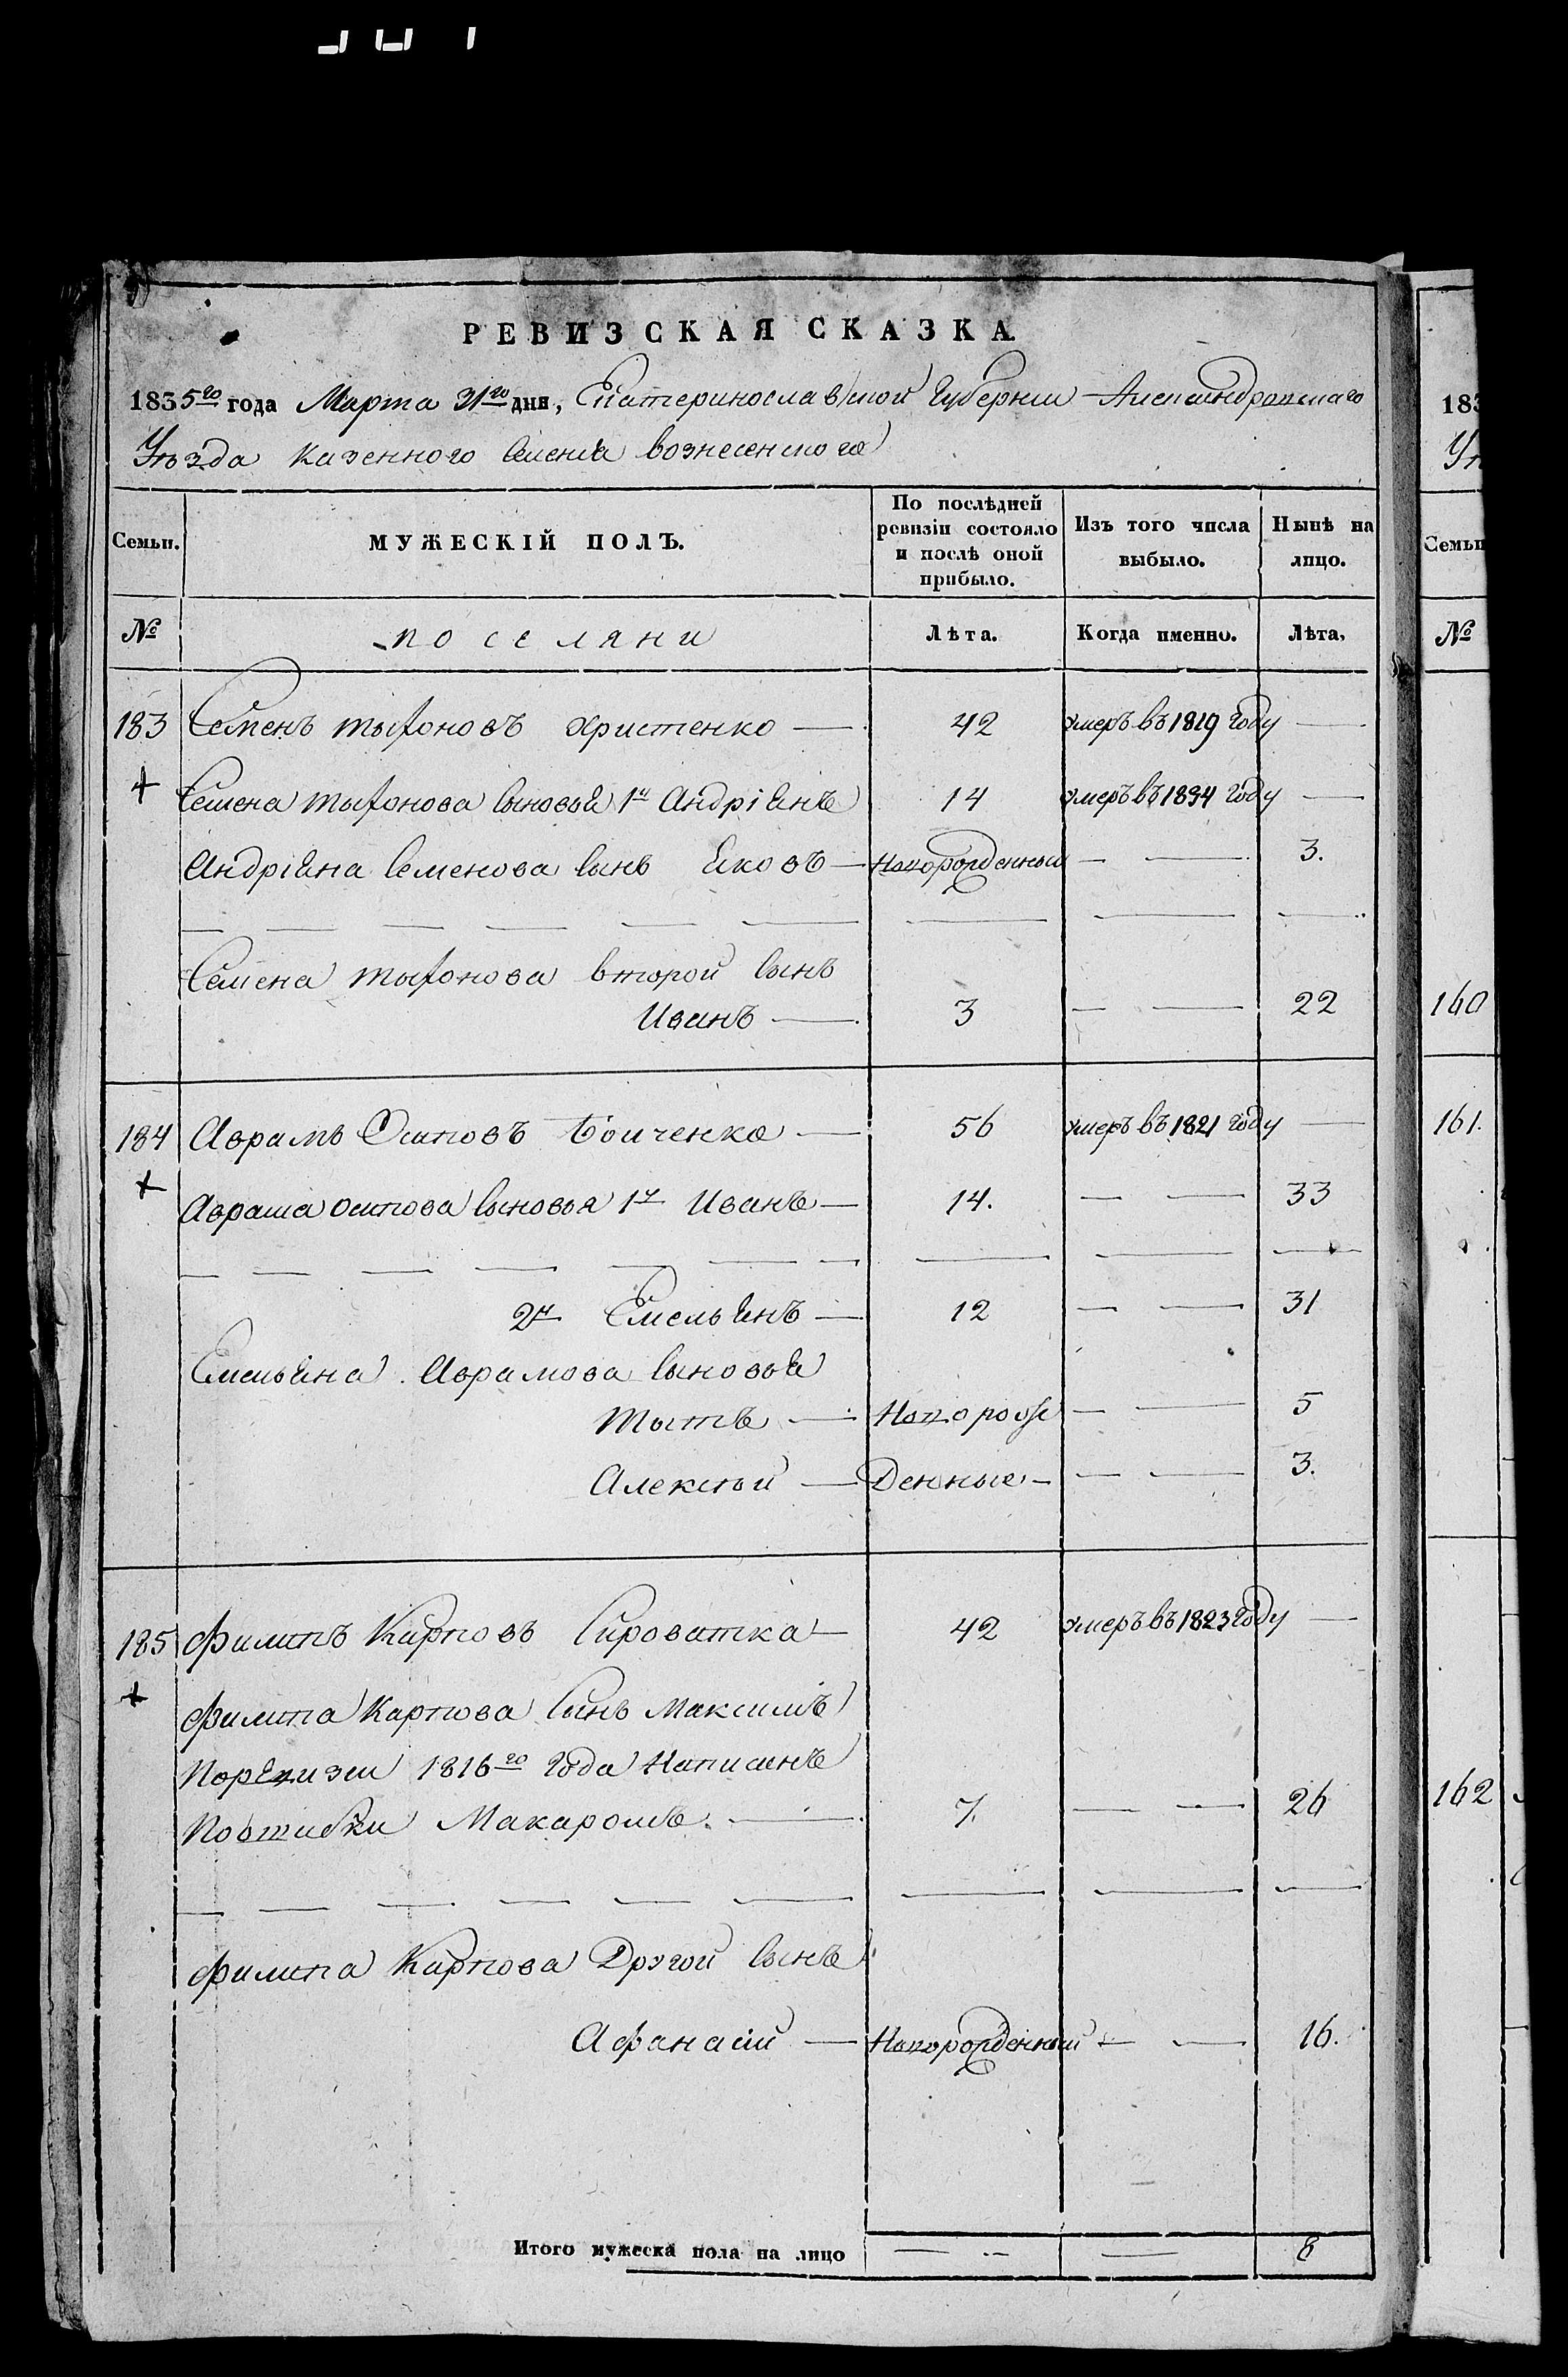 РЕВИЗСКАЯ СКАЗКА.
1835го года Марта 31го дня, Екатеринославской Губернии Александровскаго
Уѣзда казенного селения вознесенского
Семьи. МУЖЕСКІЙ ПОЛЪ. По послѣдней ревизіи состояло и послѣ оной прибыло. Изъ того числа выбыло. Нынѣ на лицо.
№ поселяни Лѣта. Когда именно. Лѣта.
183 Семенъ тыхоновъ христенко — 42 умеръ въ 1819 году —
Семена тыхонова сыновья 1й Андріянъ 14 умеръ въ 1834 году —
Андріяна Семенова сынъ Яковъ — Новорожденный — — 3.
Семена тыхонова второй сынъ
Иванъ — 3 — — 22
184 Аврамъ Осиповъ Бойченко — 56 умеръ въ 1821 году —
Аврама осипова сыновья 1й Иванъ — 14. — — 33
2й Емельянъ — 12 — — 31
Емельяна Аврамова сыновья
Тытъ — Новорож — — 5
Алексѣй — Денные — — — 3.
185 Филипъ Карповъ Сироватка — 42 умеръ въ 1823 году —
Филипа Карпова сынъ Максимъ
Поревизии 1816го Года Написанъ
Поошибки Макаромъ. — 7. — — 26
Филипа Карпова Другой сынъ
Афанасій — Новорожденный — — 16.
Итого мужеска пола на лицо — — — 8
183
Уѣ
Семьи
№
160
161.
162